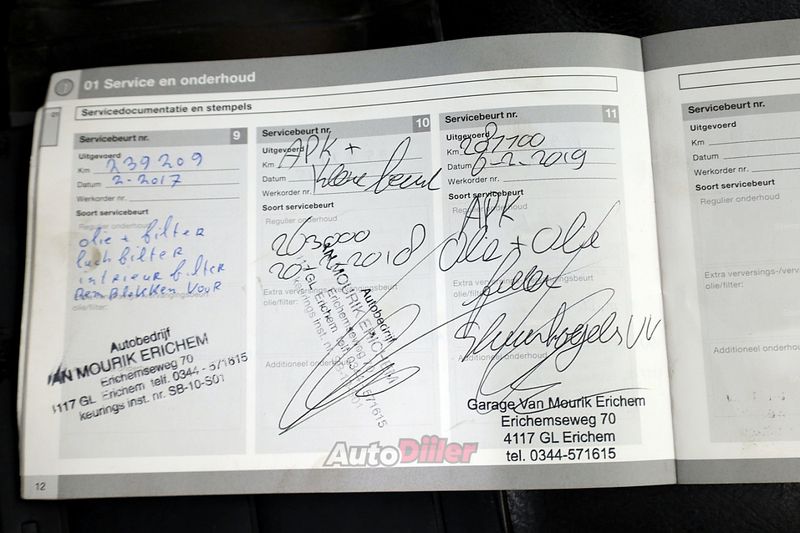 01 Service en onderhoud
01
Servicedocumentatie en stempels
Servicebeurt nr. 9
Uitgevoerd
Km 239209
Datum 2-2017
Werkorder nr.
Soort servicebeurt
Regulier onderhoud
olie + filter
luchfilter
intrieur filter
Remblokken voor
Autobedrijf
VAN MOURIK ERICHEM
Erichemseweg 70
4117 GL Erichem telf. 0344 - 571615
keurings inst. nr. SB-10-S01
Servicebeurt nr. 10
Uitgevoerd
Km APK +
Datum kleine beurt
Werkorder nr.
Soort servicebeurt
Regulier onderhoud
263000
2018
Extra
olie/filter:
Additioneel
Autobedrijf
VAN MOURIK ERICHEM
Erichemseweg 70
4117 GL Erichem telf. 0344 - 571615
keurings inst. nr.
Servicebeurt nr. 11
Uitgevoerd
Km
Datum 6-2-2019
Werkorder nr.
Soort servicebeurt
Regulier onderhoud
APK
olie + olie
filter
Extra
olie/filter:
Additioneel onderhoud
Garage Van Mourik Erichem
Erichemseweg 70
4117 GL Erichem
tel. 0344-571615
Servicebeurt nr.
Uitgevoerd
Km
Datum
Werkorder nr.
Soort servicebeurt
Regulier onderhoud
Extra verversings-/verv
olie/filter:
Additioneel onderhou
12
AutoDiiler